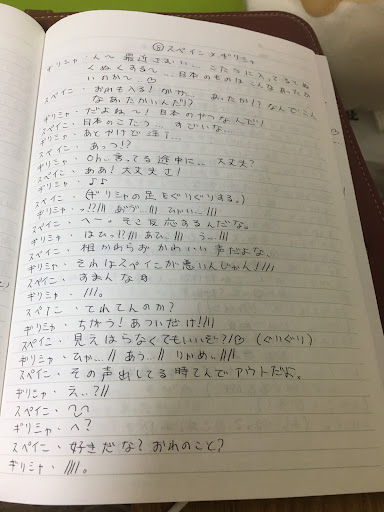 ⑧スペイン×ギリシャ
ギリシャ・ん〜 最近さむい… こたつに入ってるとぬ
くぬくする〜 … 日本のものはこんなあったか
いのか〜
スペイン・おれも入る! がサ、 あったか!? なんでこん
なあったかいんだ!?
ギリシャ・だよね〜! 日本のやつなんだ!
スペイン・日本のこたつ すごいな…
ギリシャ・あとやけど注
スペイン・あっつ!?
ギリシャ・oh.. 言ってる途中に… 大丈夫?
スペイン・ああ! 大丈夫さ!
ギリシャ・♪♪
スペイン・(ギリシャの足をぐりぐりする。)
ギリシャ・っ!?// あぅ…/// ひゃぃ…///
スペイン・へー。そこ反応するんだな。
ギリシャ・はひっ!?// あひ…/// ぅ…///
スペイン・相かわらおかわいい声だよな、
ギリシャ・それはスペインが悪いんじゃん!///
スペイン・すまんな
ギリシャ・///。
スペイン・てれてんのか?
ギリシャ・ちがう! あついだけ!///
スペイン・見えはらなくてもいいぞ? (ぐりぐり)
ギリシャ・ひゃ…// あぅ…//
スペイン・その声出してる時てんでアウトだよ。
ギリシャ・え..?//
スペイン・
ギリシャ・へ?
スペイン・好きだな? おれのこと?
ギリシャ・////。